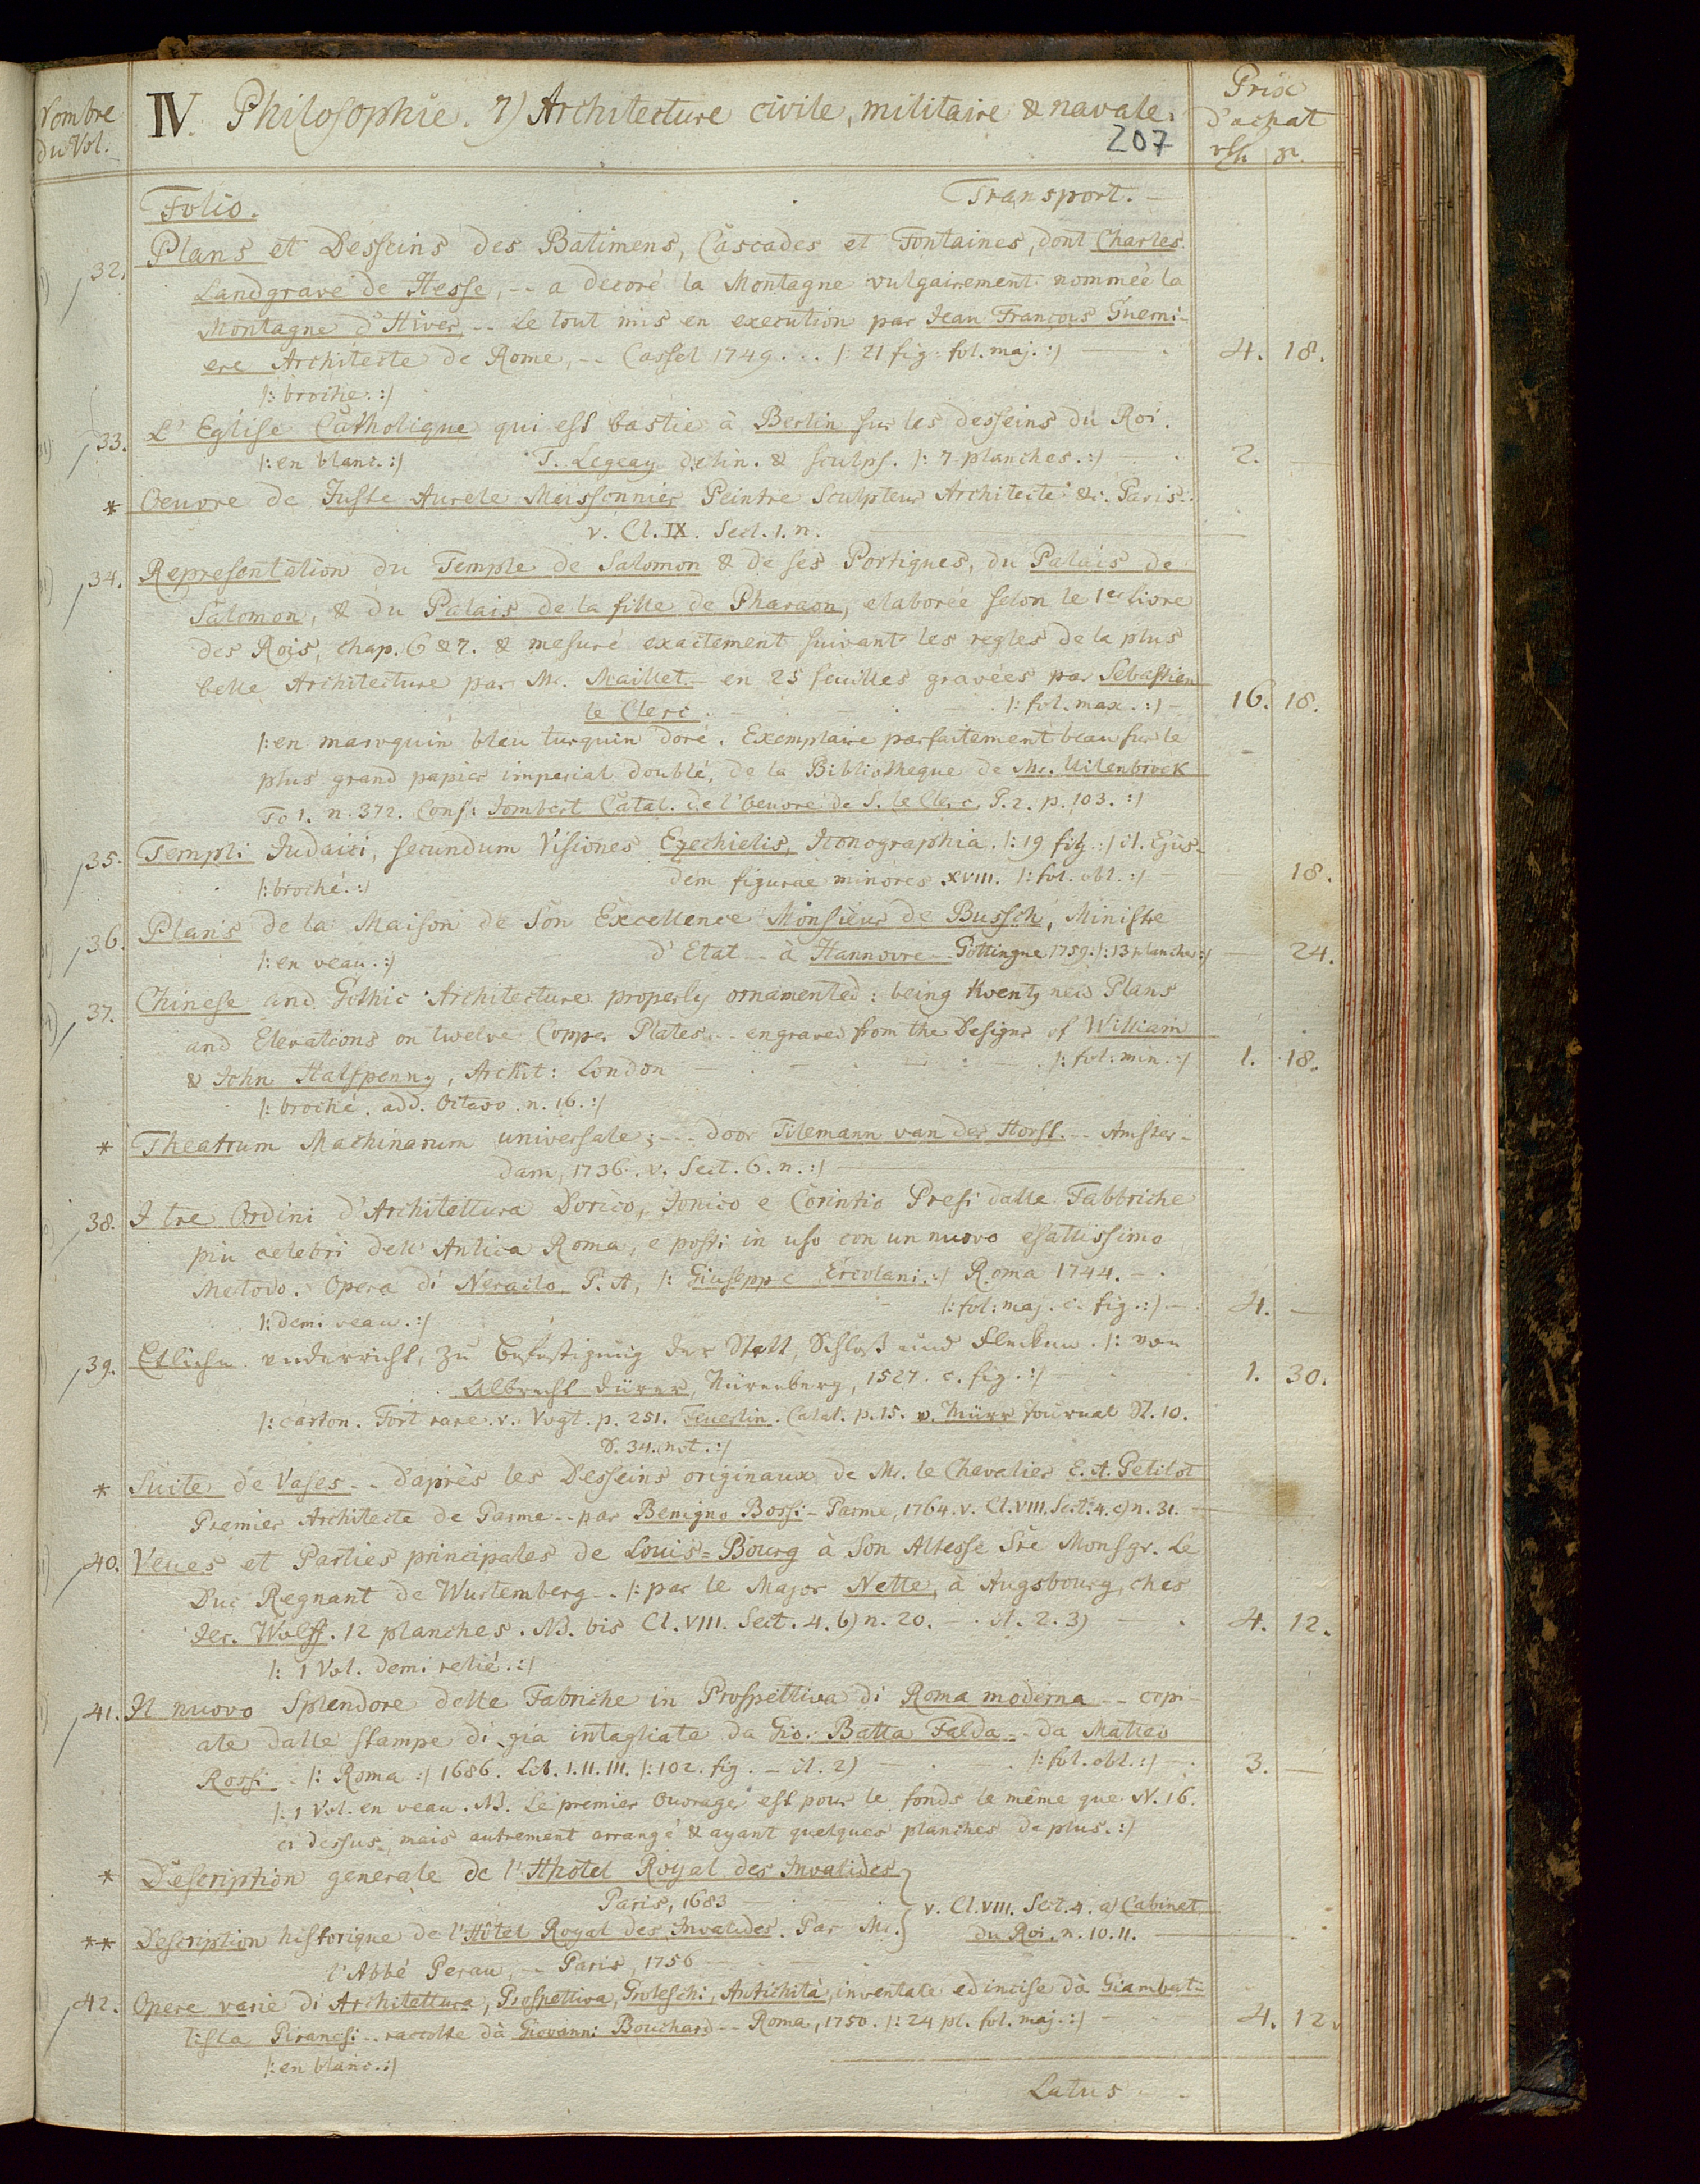 Nombre
du Vol.
IV. Philosophie. 7) Architecture civile, militaire & navale.
207
Prix
d'achat
Folio. Transport. —
32. Plans et Desseins des Batimens, Cascades et Fontaines, dont Charles
Landgrave de Hesse, -- a decoré la Montagne vulgairement nommée la
Montagne d'Hiver, -- Le tout mis en execution par Jean François Guerni-
ere Architecte de Rome, -- Cassel 1749... /: 21 fig. fol. maj. :/ — 4. 18.
/: broché. :/
33. L'Eglise Catholique qui est bastie à Berlin sur les desseins du Roi.
/: en blanc. :/ J. Legeay delin. & sculps. /: 7 planches. :/ 2. —
* Oeuvre de Juste Aurele Meissonnier Peintre Sculpteur Architecte &c. Paris..
v. Cl. IX. Sect. 1. n. —
34. Representation du Temple de Salomon & de ses Portiques, du Palais de
Salomon, & du Palais de la fille de Pharaon, elaborée selon le 1er livre
des Rois, chap. 6 & 7. & mesuré exactement suivant les regles de la plus
belle Architecture par Mr. Maillet - en 25 feuilles gravées par Sebastien
le Clerc. — /: fol. max. :/ — 16. 18.
/: en maroquin bleu turquin doré. Exemplaire parfaitement beau sur le
plus grand papier imperial doublé, de la Bibliotheque de Mr. Uilenbroek
To 1. n. 372. Conf: Jombert Catal. de l'Oeuvre de S. le Clerc. P. 2. p. 103. :/
35. Templi Judaici, secundum Visiones Ezechielis, Iconographia. /: 19 fig :/ it. Ejus-
/: broché. :/ dem figurae minores XVIII. /: fol. obl. :/ — 18.
36. Plans de la Maison de Son Excellence Monsieur de Bussch, Ministre
/: en veau. :/ d'Etat -- à Hannovre -- Göttingue 1759. /: 13 planches :/ — 24.
37. Chinese and Gothic Architecture properly ornamented: being twenty new Plans
and Elevations on twelve Copper Plates... engraved from the Designs of William
& John Halfpenny, Archit: London — /: fol: min. :/ 1. 18.
/: broché. add. Octavo. n. 16. :/
* Theatrum Machinarum universale; --- door Tilemann van der Horst. -- Amster-
dam, 1736. v. Sect. 6. n. :/ —
38. I tre Ordini d'Architettura Dorico, Jonico e Corintio Presi dalle Fabbriche
piu celebri dell' Antica Roma, e posti in uso con un nuovo esattissimo
Metodo. Opera di Neralco P. A, /: Giuseppe Ercolani. :/ Roma 1744. —
/: fol: maj. c. fig. :/ — 4. —
/: demi veau. :/
39. Etliche underricht, zu Befestigung der Stett, Schloß und Flecken. /: von
Albrecht Dürer, Nürenberg, 1527. c. fig. :/ 1. 30.
/: carton. Fort rare. v. Vogt. p. 251. Feuerlin. Catal. p. 15. v. Murr Journal St. 10.
S. 34. not. :/
* Suite de Vases -- d'après les Desseins originaux de Mr. le Chevalier E. A. Petitot
Premier Architecte de Parme -- par Benigno Bossi - Parme, 1764. v. Cl. VIII. Sect. 4. c) n. 31. —
40. Veues et Parties principales de Louis=Bourg à Son Altesse Sre Monsgr. Le
Duc Regnant de Wurtemberg -- /: par le Major Nette, à Augsbourg, ches
Jer. Wolff. 12 planches. NB. bis Cl. VIII. Sect. 4. b) n. 20. — it. 2. 3) — 4. 12.
/: 1 Vol. demi relié. :/
41. Il nuovo Splendore delle Fabriche in Prospettiva di Roma moderna -- copi-
ate dalle stampe di gia intagliate da Gio. Batta Falda -- da Matteo
Rossi - /: Roma :/ 1686. Lib. I. II. III. /: 102. fig. - it. 2) — /: fol. obl. :/ — 3. —
/: 1 Vol. en veau. NB. Le premier Ouvrage est pour le fonds le même que N. 16.
ci dessus, mais autrement arrangé & ayant quelques planches de plus. :/
* Description generale de l'Hhotel Royal des Invalides
Paris, 1683 — v. Cl. VIII. Sect. 4. a) Cabinet
** Description historique de l'Hôtel Royal des Invalides. Par Mr. du Roi. n. 10. 11. —
l'Abbé Perau, -- Paris, 1756 —
42. Opere varie di Architettura, Prospettiva, Groteschi, Antichità, inventate ed incise dà Giambat-
tista Piranesi -- raccolte dà Giovanni Bouchard -- Roma, 1750. /: 24 pl. fol. maj. :/ — 4. 12.
/: en blanc. :/
Latus —